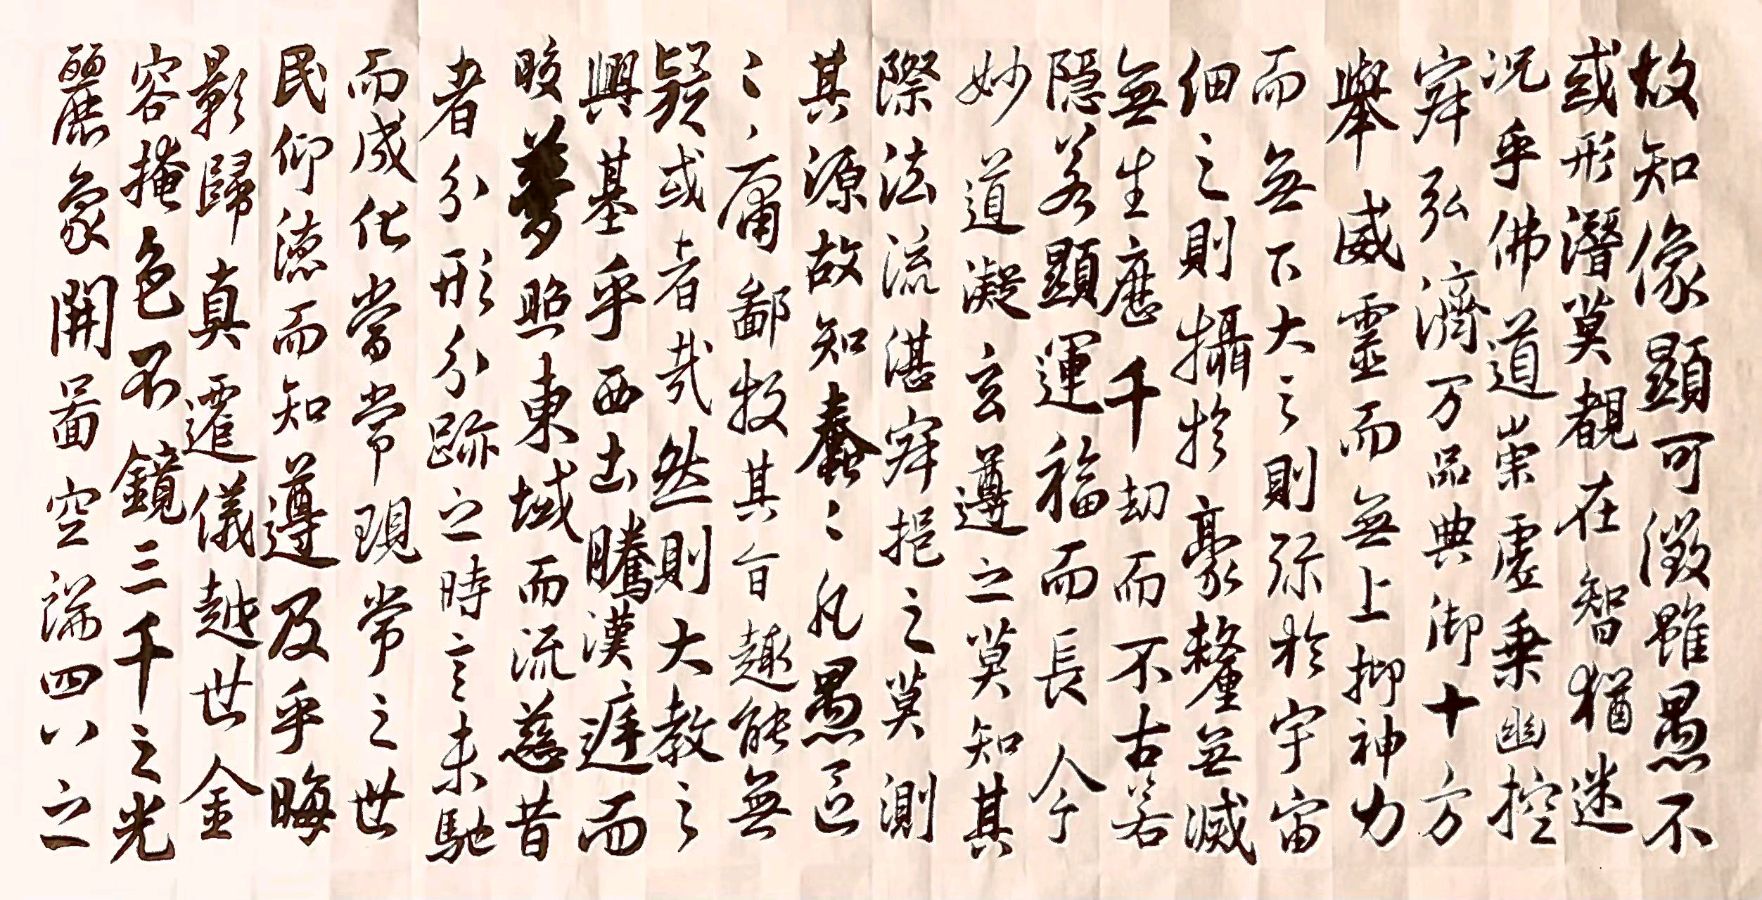 故知像顯可徵雖愚不
或形潛莫覩在智猶迷
况乎佛道崇虛乗幽控
寂弘濟万品典御十方
舉威靈而無上抑神力
而無下大之則弥於宇宙
細之則攝於豪釐無滅
無生歷千劫而不古若
隱若顯運福而長今
妙道凝玄遵之莫知其
際法流湛寂挹之莫測
其源故知蠢〻凡愚區
〻庸鄙投其旨趣能無
疑或者哉然則大教之
興基乎西土騰漢庭而
晈夢照東域而流慈昔
者分形分跡之時言未馳
而成化當常現常之世
民仰德而知遵及乎晦
影歸真遷儀越世金
容掩色不鏡三千之光
麗象開圖空端四八之